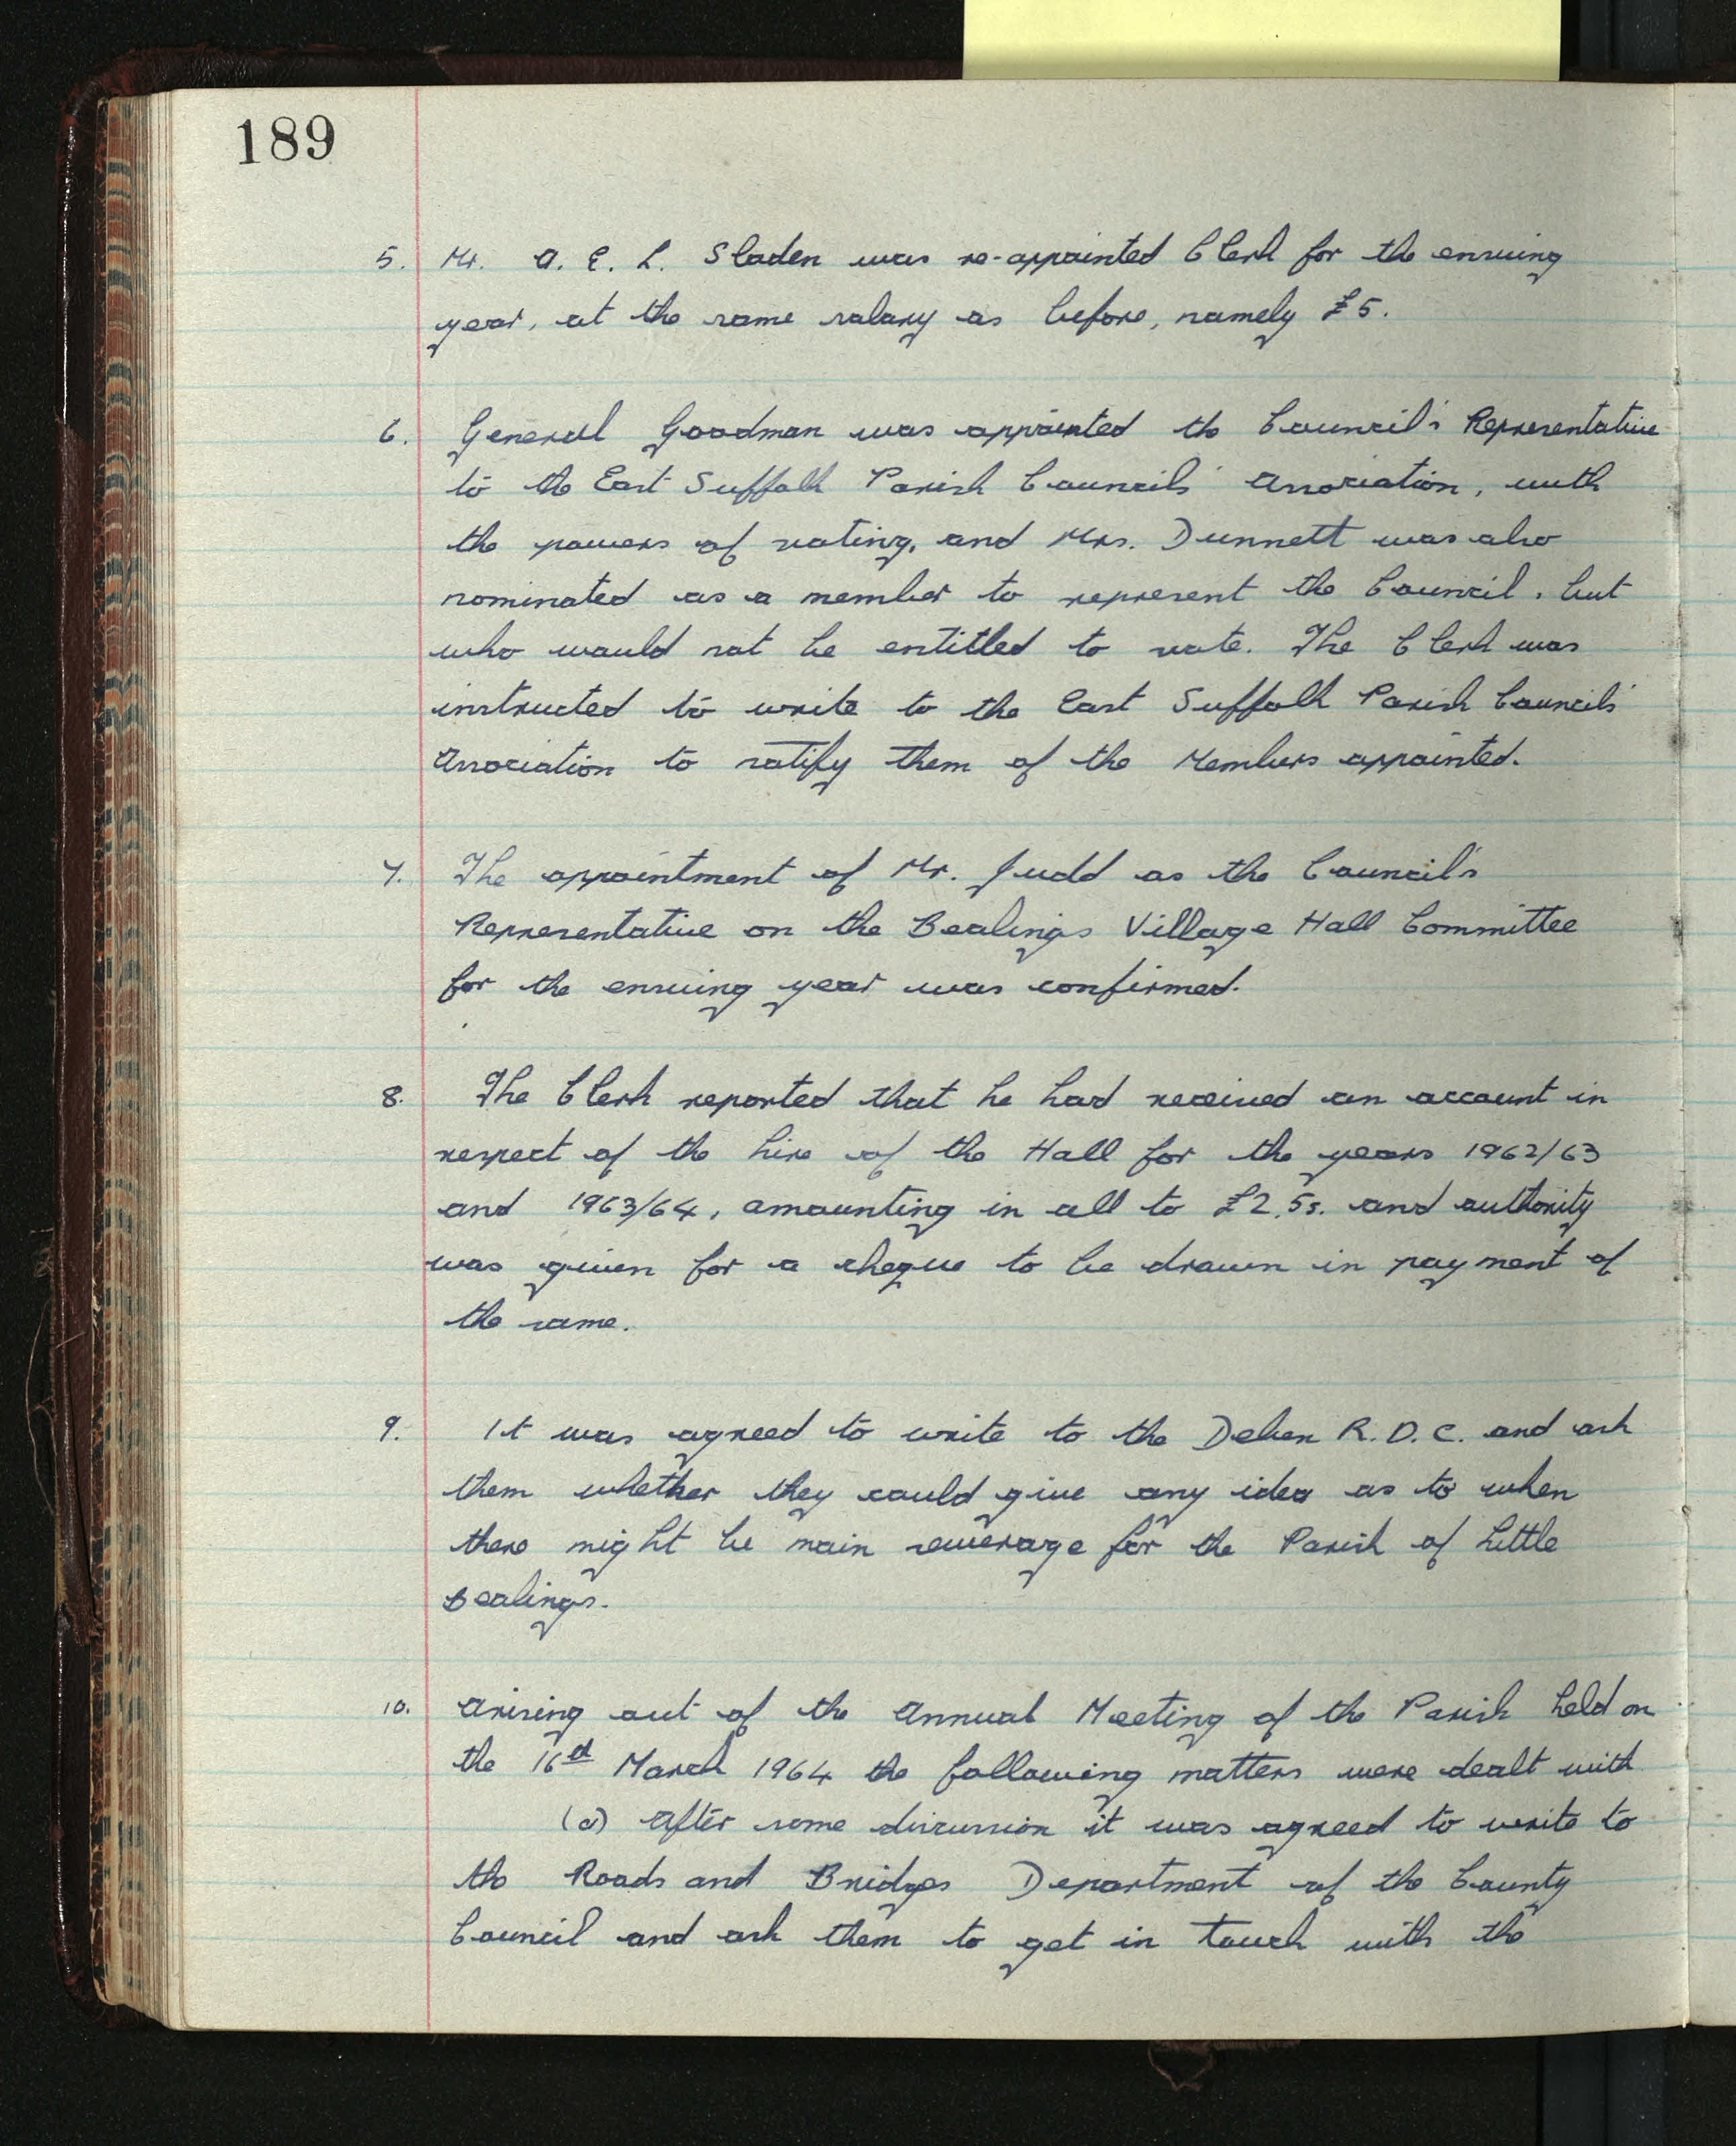 189
5. Mr. A. E. L. Sladen was re-appointed Clerk for the ensuing
year, at the same salary as before, namely £5.
6. General Goodman was appointed the Council's Representative
to the East Suffolk Parish Councils' Association, with
the powers of voting, and Mrs. Dunnett was also
nominated as a member to represent the Council, but
who would not be entitled to vote. The Clerk was
instructed to write to the East Suffolk Parish Councils'
Association to notify them of the Members appointed.
7. The appointment of Mr. Judd as the Council's
Representative on the Bealings Village Hall Committee
for the ensuing year was confirmed.
8. The Clerk reported that he had received an account in
respect of the hire of the Hall for the years 1962/63
and 1963/64, amounting in all to £2.5s. and authority
was given for a cheque to be drawn in payment of
the same.
9. It was agreed to write to the Deben R.D.C. and ask
them whether they could give any idea as to when
there might be main sewerage for the Parish of Little
Bealings.
10. Arising out of the Annual Meeting of the Parish held on
the 16th March 1964 the following matters were dealt with
(a) After some discussion it was agreed to write to
the Roads and Bridges Department of the County
Council and ask them to get in touch with the